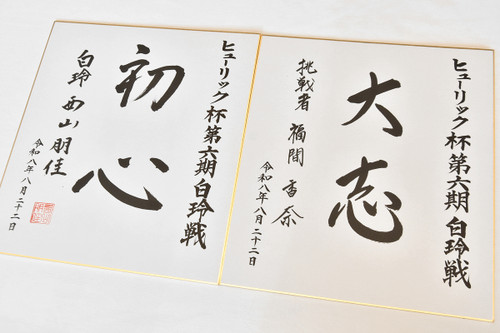 ヒューリック杯第六期白玲戦
初心
白玲 西山朋佳
令和八年八月二十二日
ヒューリック杯第六期白玲戦
大志
挑戦者 福間香奈
令和八年八月二十二日